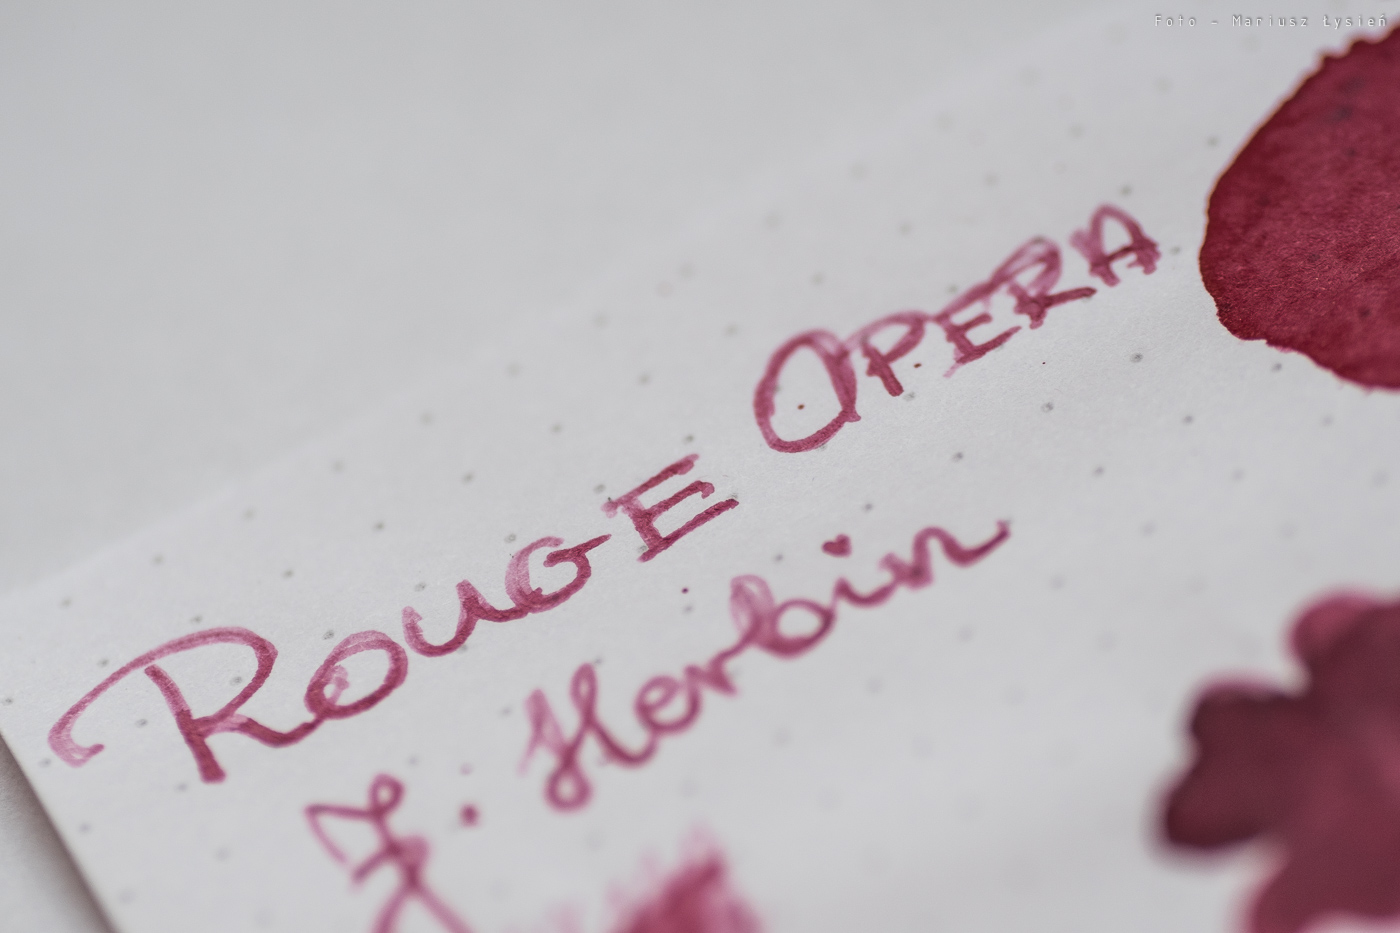 Foto - Mariusz Łysień
ROUGE OPERA
J. Herbin